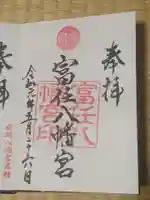 奉拝
富任八幡宮
令和元年五月二十六日
富任八
幡宮印
奉拝